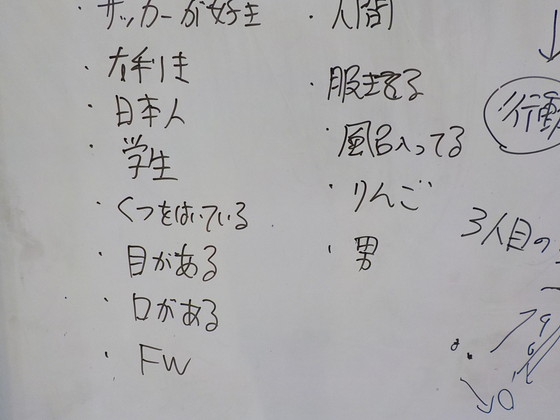 ・サッカーが好き
・右利き
・日本人
・学生
・くつをはいている
・目がある
・口がある
・FW
・人間
・服きてる
・風呂入ってる
・りんご
・男
行動
3人目の